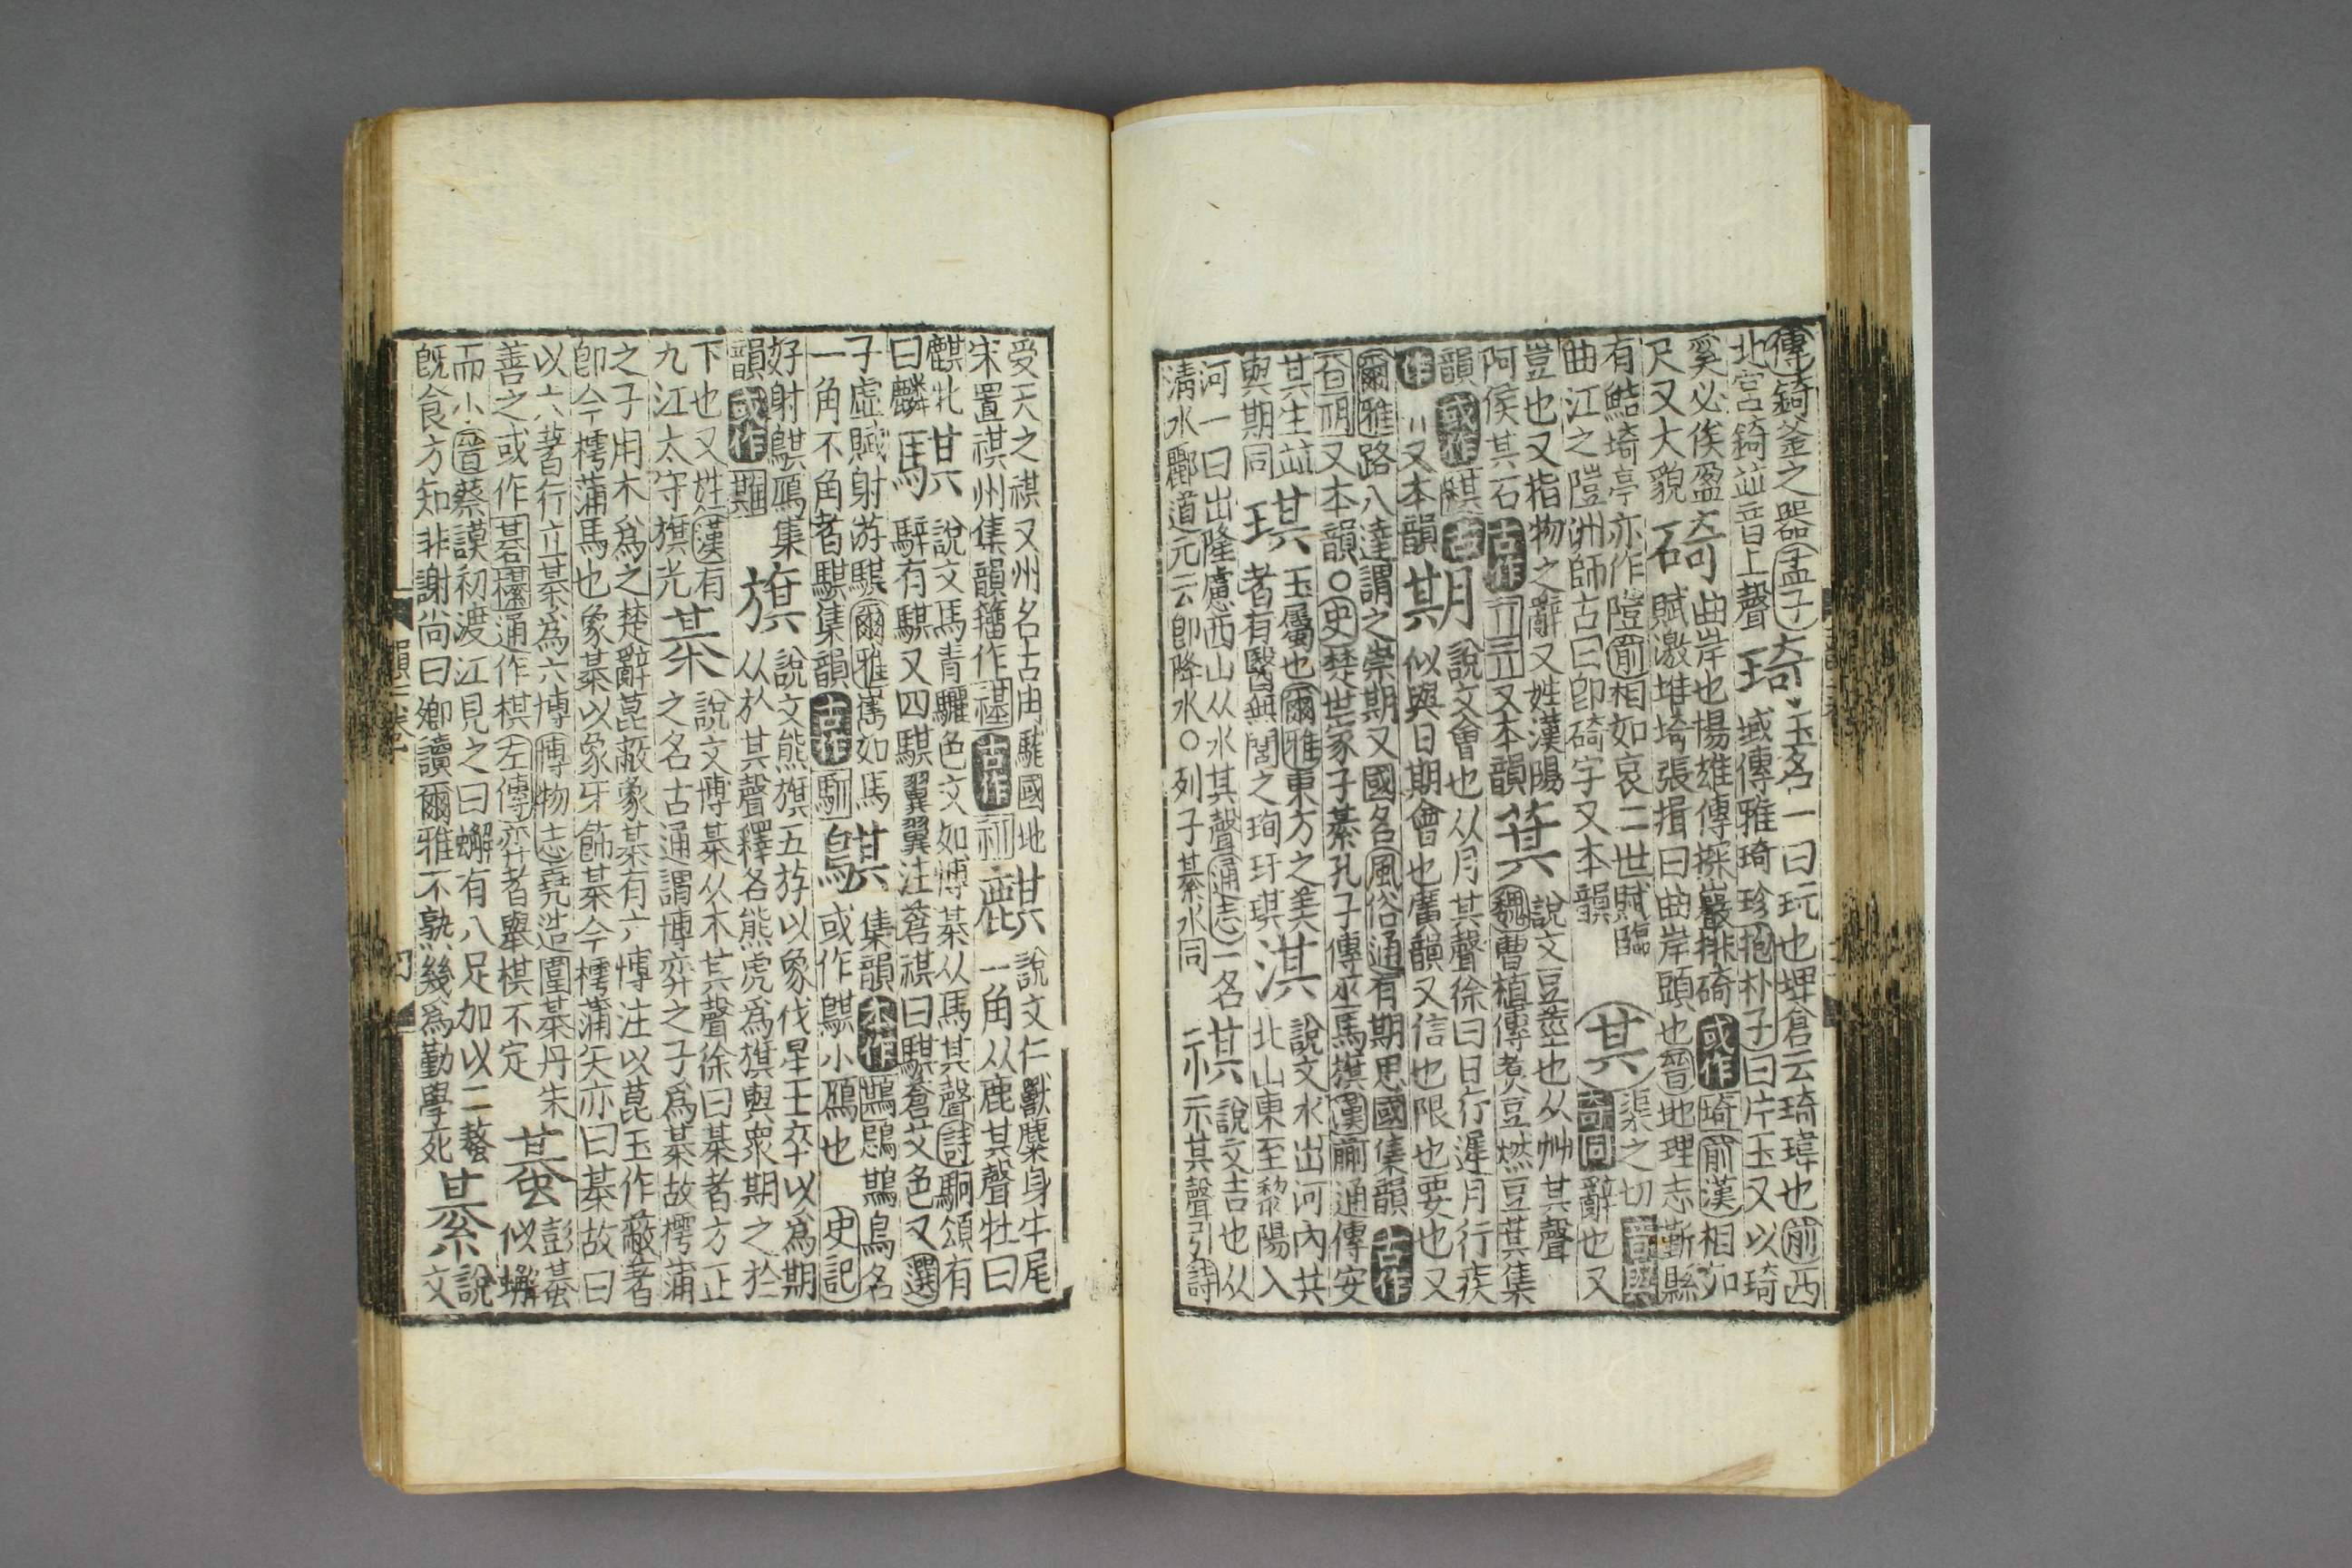 傳錡釜之器孟子
北宮錡並音上聲
琦
玉名一曰玩也埤倉云琦瑋也前西
域傳雅琦珍抱朴子曰片玉又以琦
奚必俟盈
尺又大貌
碕
曲岸也揚雄傳探巖排碕或作埼前漢相如
賦激堆埼張揖曰曲岸頭也晉地理志蘄縣
有鮚埼亭亦作隑前相如哀二世賦臨
曲江之隑洲師古曰卽碕字又本韻
其
渠之切音與
奇同辭也又
豈也又指物之辭又姓漢陽
阿侯其石古作亓又本韻
萁
說文豆莖也从艸其聲
魏曹植傳煑豆燃豆萁集
韻或作古
作〃又本韻
期
說文會也从月其聲徐曰日行遲月行疾
似與日期會也廣韻又信也限也要也又
爾雅路八達謂之崇期又國名風俗通有期思國集韻古作
又本韻○史楚世家子綦孔子傳巫馬旗漢蒯通傳安
其生並
與期同
琪
玉屬也爾雅東方之美
者有醫無閭之珣玗琪
淇
說文水出河內共
北山東至黎陽入
河一曰出隆慮西山从水其聲通志一名
淸水酈道元云卽降水○列子綦水同
祺
說文吉也从
示其聲引詩
受天之祺又州名古由國地
宋置祺州集韻籀作禥古作
麒
說文仁獸麋身牛尾
一角从鹿其聲牡曰
麒牝
曰麟
騏
說文馬青驪色文如博棊从馬其聲詩駉頌有
騂有騏又四騏翼翼注蒼祺曰騏蒼艾色又選
子虛賦射游騏爾雅巂如馬
一角不角者騏集韻古作馴
鶀
集韻本作鶀鳥名
或作鶀小鴈也史記
好射鶀鴈集
韻或作
旗
說文熊旗五斿以象伐星士卒以爲期
从㫃其聲釋名熊虎爲旗與衆期之於
下也又姓漢有
九江太守旗光
棊
說文博棊从木其聲徐曰棊者方正
之名古通謂博弈之子爲棊故樗蒲
之子用木爲之楚辭菎蔽象棊有六博注以菎玉作蔽著
卽今樗蒲馬也象棊以象牙飾棊今樗蒲矢亦曰棊故曰
以六著行立棊爲六博博物志堯造圍棊丹朱
善之或作碁通作棋左傳弈者舉棋不定
蜝
彭蜝
似蠏
而小晉蔡謨初渡江見之曰蠏有八足加以二螯
旣食方知非謝尚曰鄉讀爾雅不熟幾爲勤學死
綦
說
文